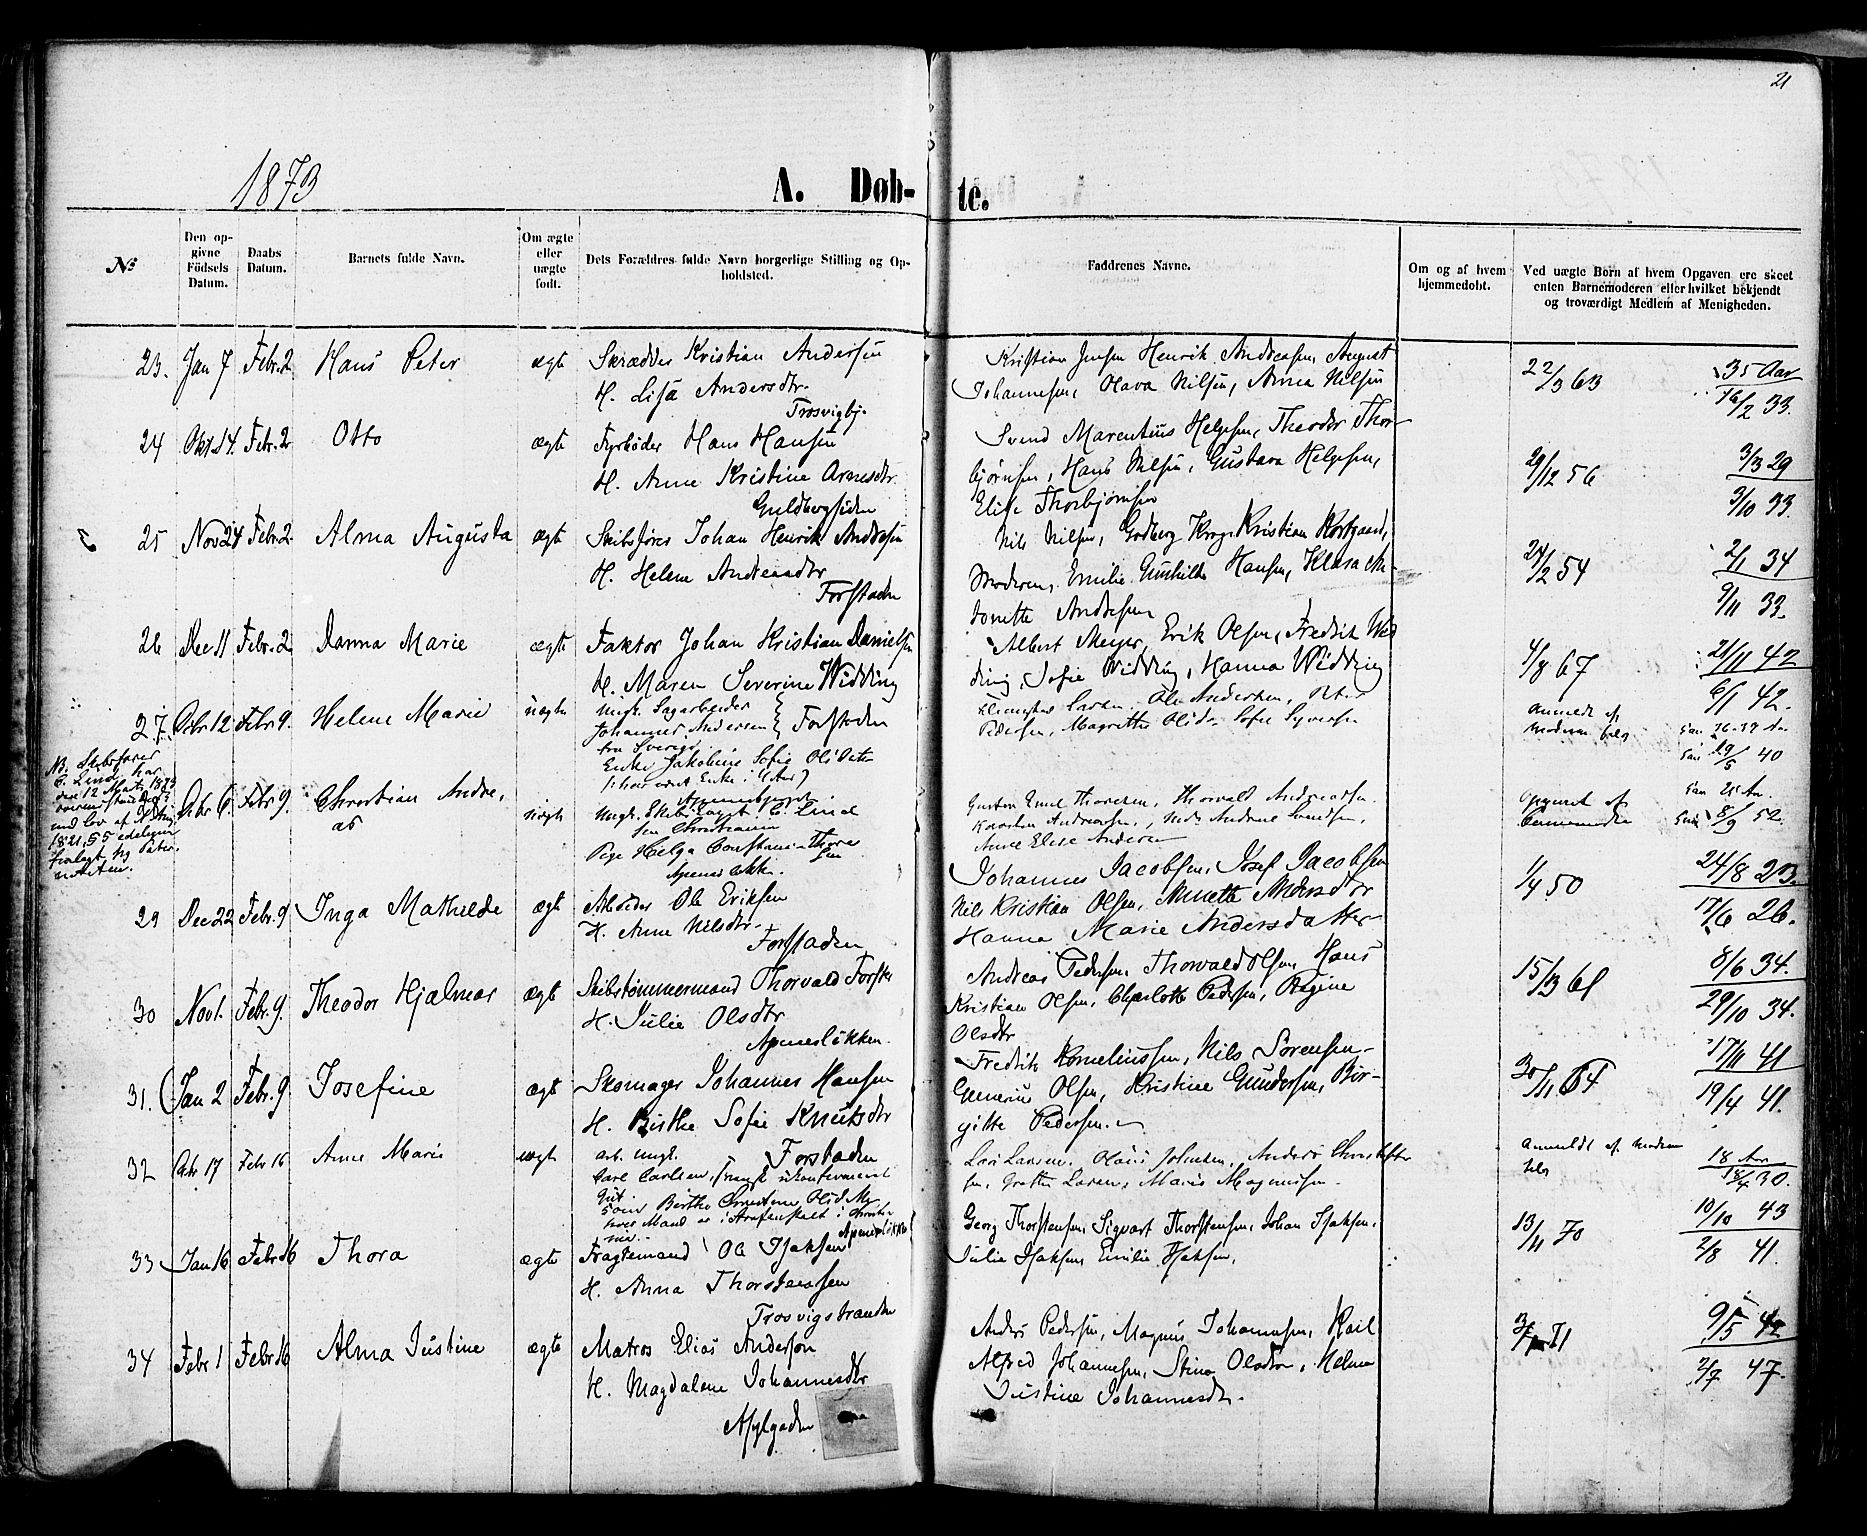 21
1873
A. Døb- te.
№
Den op-
givne
Födsels
Datum.
Daabs
Datum.
Barnets fulde Navn.
Om ægte
eller
uægte
født.
Dets Forældres fulde Navn borgerlige Stilling og Op-
holdsted.
Faddrenes Navne.
Om og af hvem
hjemmedøbt.
Ved uægte Børn af hvem Opgaven ere skeet
enten Barnemoderen eller hvilket bekjendt
og troværdigt Medlem af Menigheden.
23. Jan 7 Febr. 2 Hans Peter ægte Skrædder Kristian Andersen
H. Lisa Andersdtr.
Trosvigbj.
Kristian Jensen Henrik Andreasen, August
Johannesen, Olava Nilsen, Anna Nilsen
22/3 63
35 Aar
16/2 33.
24 Okt. 14. Febr. 2 Otto ægte Fyrbøder Hans Hansen
H. Anne Kristine Arnesdtr.
Guldbergsiden
Svend Marentius Helgesen, Theodor Thor-
bjørnsen, Hans Nilsen, Gustava Helgesen,
Elise Thorbjørnsen
29/12 56
3/3 29
3/10 33.
25 Nov 24 Febr. 2. Alma Augusta ægte Skibsfører Johan Henrik Andresen
H. Helene Andreasdtr
Forstaden
Nils Nilsen, Godberg Krog, Kristian
Moderen, Emilie Gunhilde Hansen, Klara An-
tonette Andresen
24/2 54
2/1 34
9/11 33.
26 Dec 11 Febr. 2 Danna Marie ægte Faktor Johan Kristian Danielsen
H. Maren Severine Widding
Forstaden
Albert Meyer, Erik Olsen, Fredrik Wid-
ding, Sofie Widding, Hanna Widding
4/8 67
21/11 42
6/1 42.
27. Febr. 9. Helene Marie uægte Ungk. Sagarbeider
Johannes Andersen
fra Sverige
Enke Jakobine Sofie Olsdatter
Larsen, Ole Andersen, Peter
Pedersen, Magrethe Olsdr. Sofie Syversen
Anmeldt af
Moderen selv
19/5 40
NB. Skibsfører
C. Lind har
den 12 Marts 1873
6. Febr. 9. Christian Andre,
as
uægte Ungk. Skibs C. Lind
Christiania
Pige Helga Constanse Thore
sen
Gustav Emil Thoresen, Thorvald Andreassen
Karsten Andreassen, Andrine Svendsen,
Anne Elise Andersen
Opgivet af
8/9 52
29 Dec 22 Febr. 9 Inga Mathilde ægte Arbeider Ole Eriksen
H. Anne Nilsdtr.
Forstaden
Johannes Jacobsen, Josef Jacobsen
Nils Kristian Olsen, Annette Andersdtr
Hanna Marie Andersdatter
1/4 50
24/8 23.
17/6 26.
30 Nov 1. Febr. 9. Theodor Hjalmar ægte Skibstømmermand Thorvald Forsten
H. Julie Olsdtr
Apenesløkken.
Andreas Pedersen, Thorvald Olsen, Hans
Kristian Olsen, Charlotte Pedersen, Regine
Olsdtr
15/3 61
8/6 34.
29/10 34.
31. Jan 2 Febr. 9 Josefine ægte Skomager Johannes Hansen
H. Birthe Sofie Knutsdtr
Forstaden
Fredrik Korneliussen, Nils Sørensen
Olsen, Kristine Gundersen, Bir-
gitte Pedersen.
30/11 64
17/11 41
19/4 41.
32 17 Febr 16 Anne Marie uægte arb. ungk.
Carl Carlsen,
Birthe Christine Olsd.
hvis Mand er i Strafanstalt i Christia
nia. Apenesløkken
Lars Larsen, Olaus Johnsen, Anders Christoffer
sen, Grethe Larsen, Marie Magnussen.
Anmeldt af Moderen
selv
18 Aar
18/4 30.
33 Jan 16 Febr. 16 Thora ægte Fragtemand Ole Isaksen
H. Anna Thorstensen
Trosvigstranden
Georg Thorstensen, Sigvart Thorstensen, Johan Isaksen,
Julie Isaksen, Emilie Isaksen,
13/11 70
10/10 43
2/8 41.
34 Febr. 1 Febr. 16 Alma Justine ægte Matros Elias Anderson
H. Magdalene Johannesdtr
Mylgaden
Anders Pedersen, Magnus Johannesen, Karl
Alfred Johannesen, Stina Olsdtr, Helma
Justine Johannesdtr.
71
9/5 42
2/7 47.